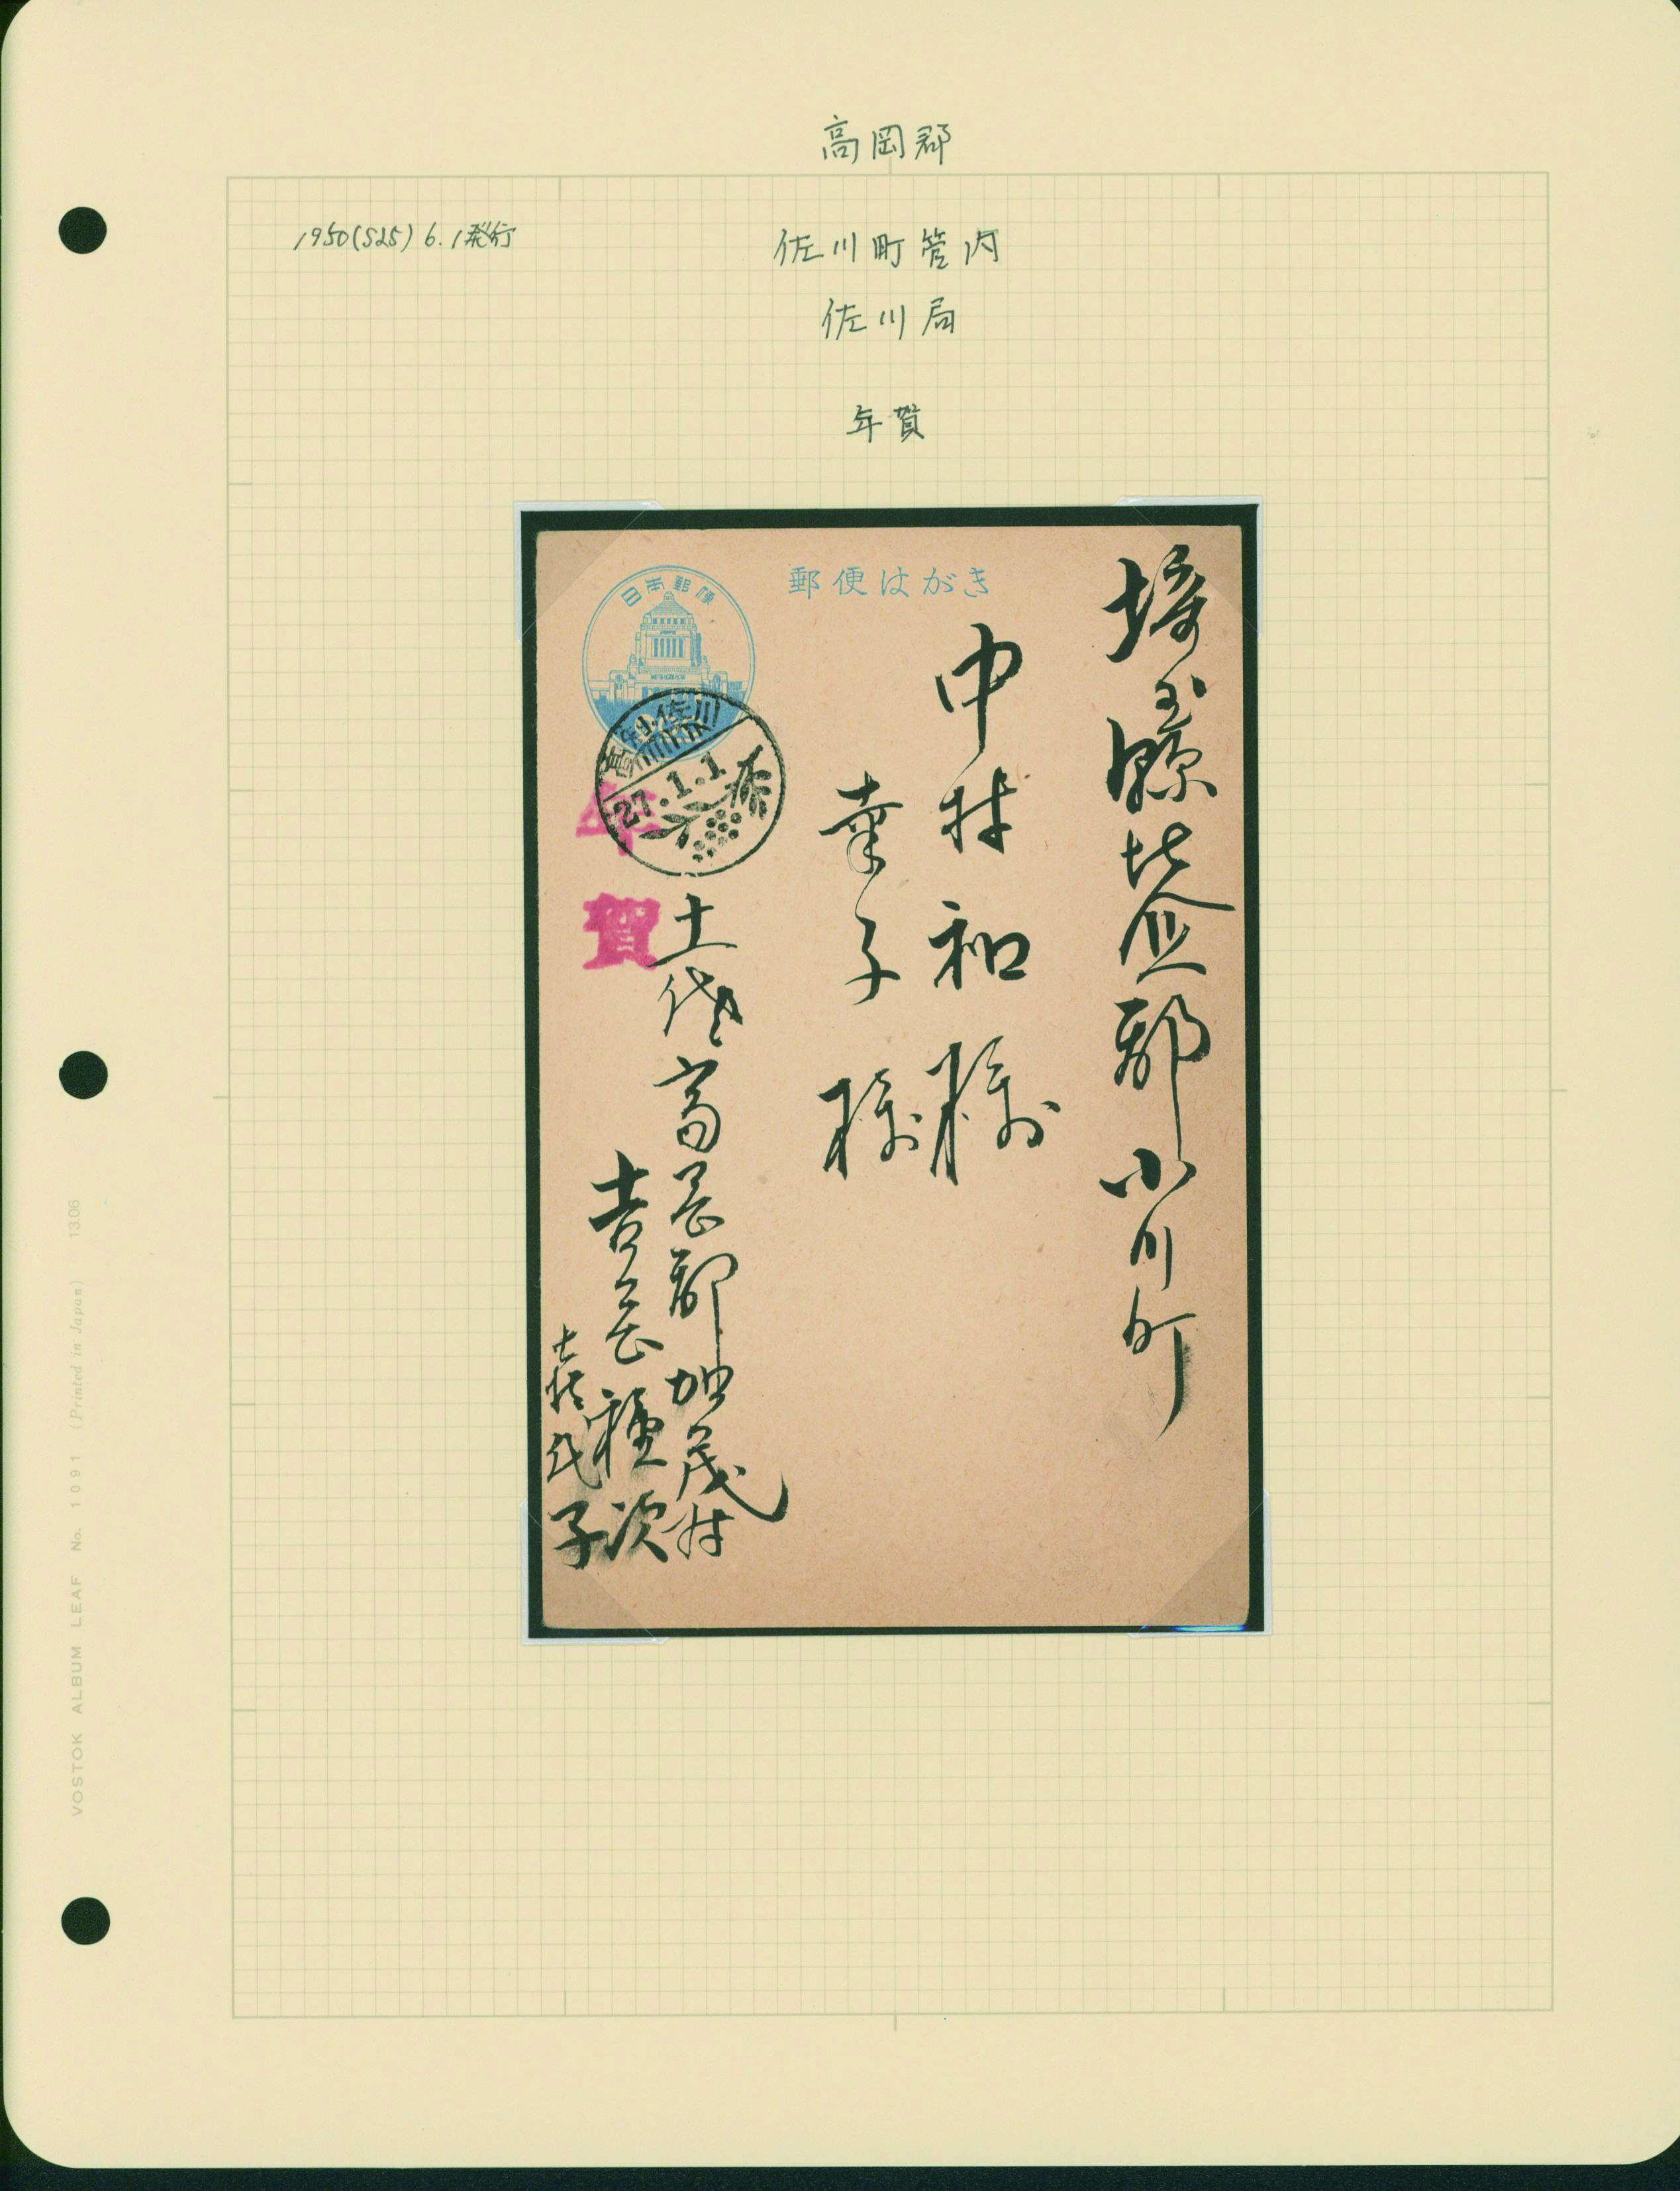 高岡郡
1950(S25) 6.1発行
佐川町管内
佐川局
年賀
郵便はがき
日本郵便
高知・佐川
27.1.1
年賀
埼玉縣比企郡小川町
中村和様
幸子様
土佐高岡郡加茂村
吉岡種次
喜代子
VOSTOK ALBUM LEAF No. 1091 (Printed in Japan) 13.06